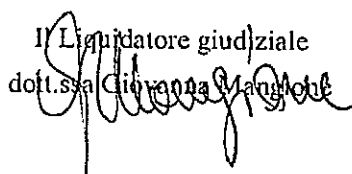 Il Liquidatore giudiziale
dott.ssa Giovanna Mangione